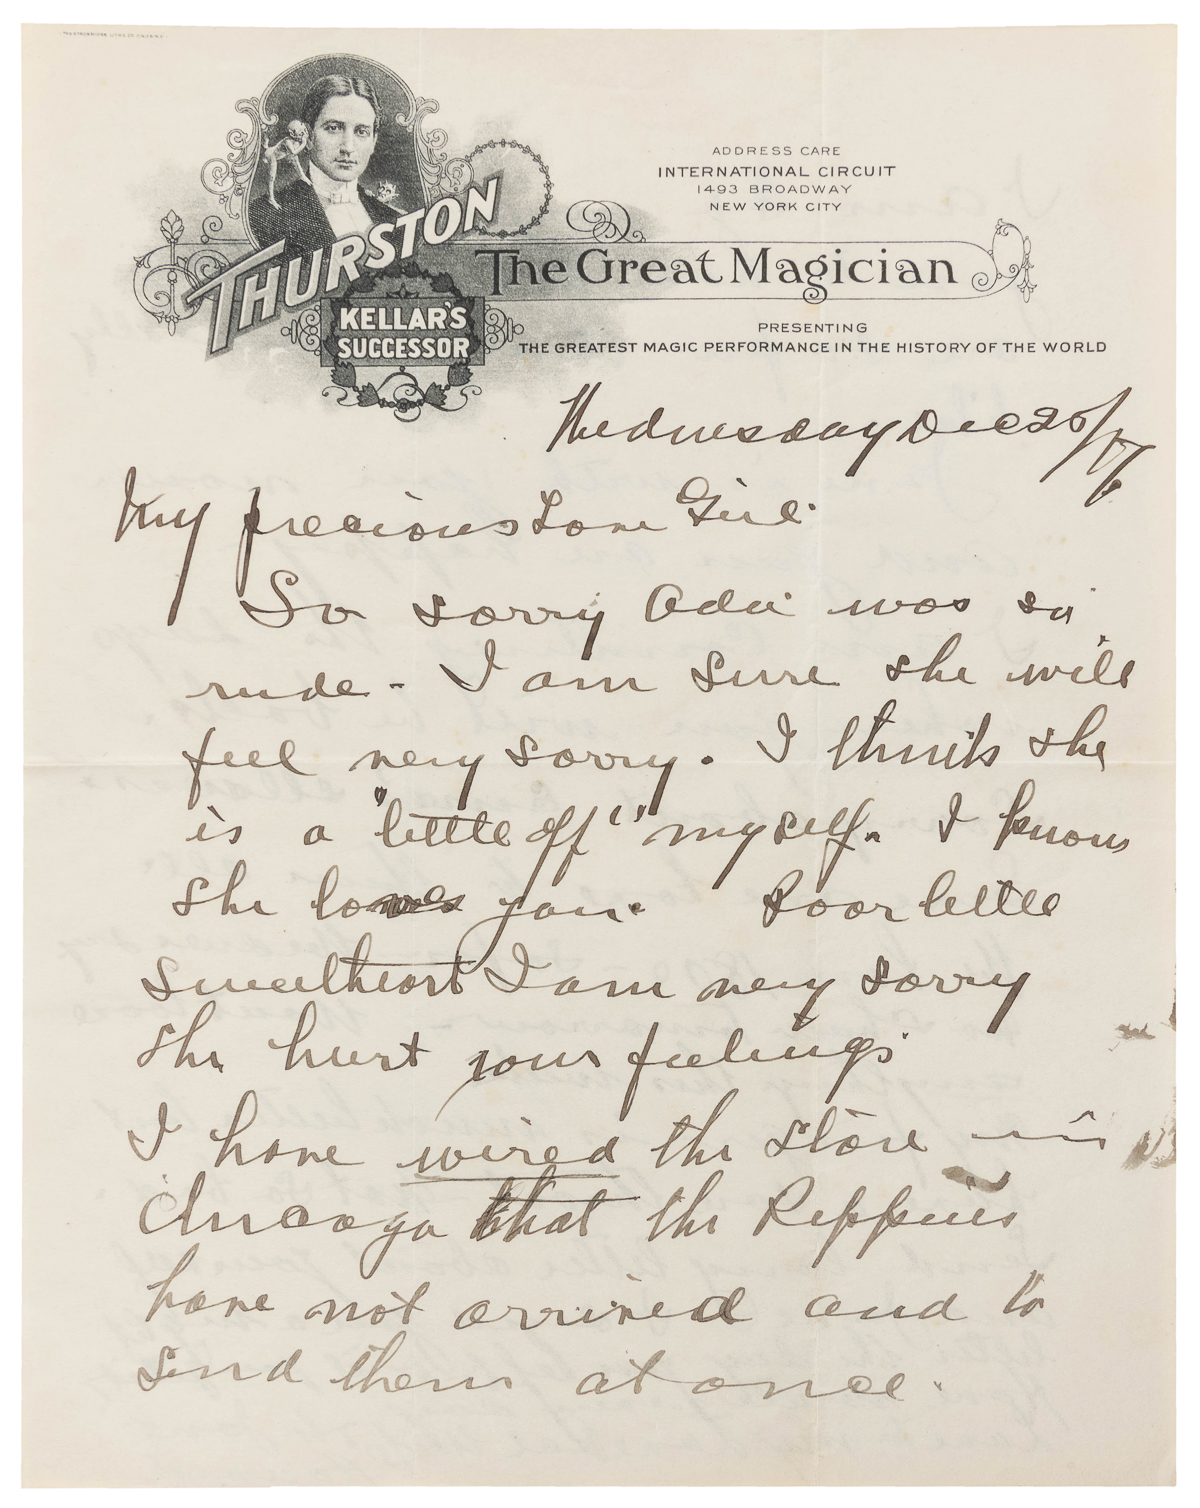 ADDRESS CARE
INTERNATIONAL CIRCUIT
1493 BROADWAY
NEW YORK CITY
THURSTON
The Great Magician
KELLAR'S
SUCCESSOR
PRESENTING
THE GREATEST MAGIC PERFORMANCE IN THE HISTORY OF THE WORLD
Wednesday Dec 25/17
My precious Love Girl.
So sorry was so
rude - I am sure she will
feel very sorry. I think she
is a "little off" myself. I know
she loves you. Poor little
sweetheart I am very sorry
she hurt your feelings
I have wired the store in
Chicago that the Rippins
have not arrived and to
send them at once.